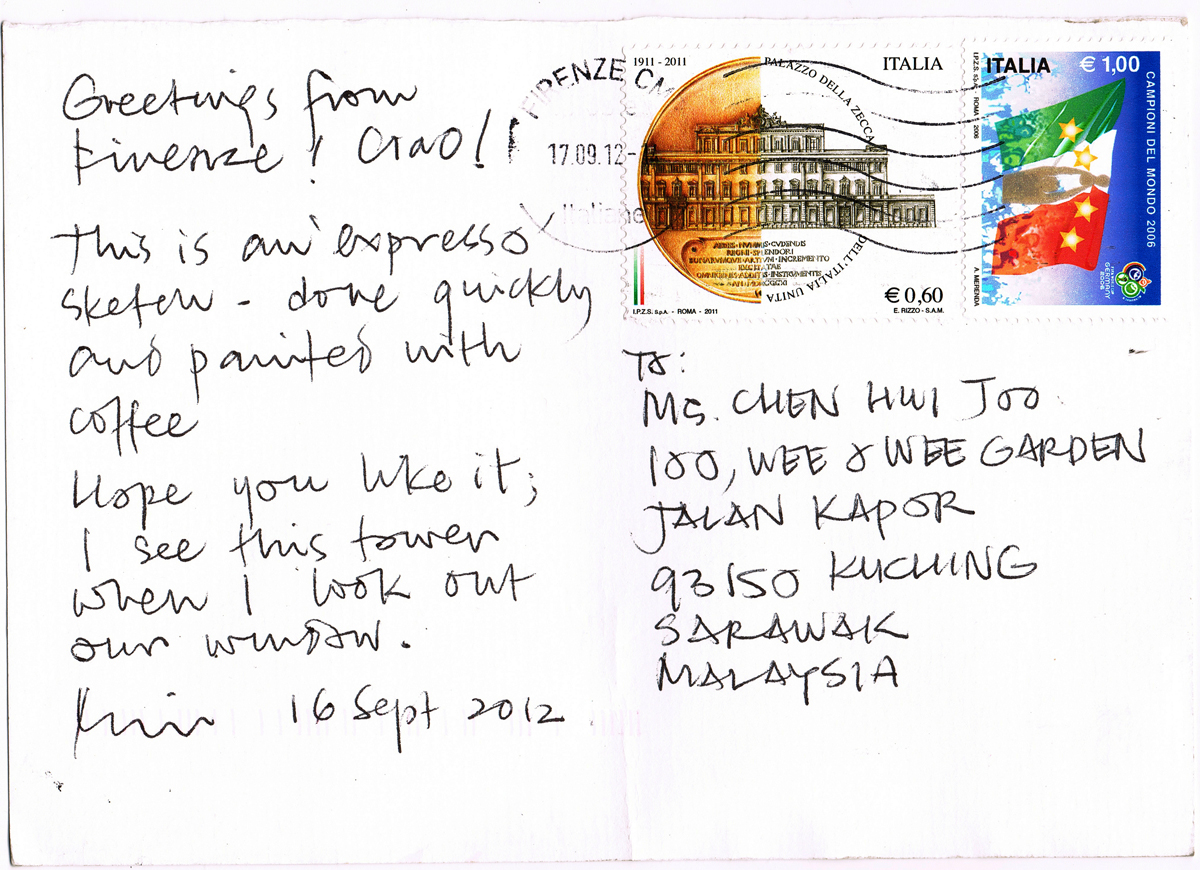 Greetings from
Firenze! Ciao!
This is an 'expresso'
sketch - done quickly
and painted with
coffee
Hope you like it;
I see this tower
when I look out
our window.
16 Sept 2012
FIRENZE CM
17.09.12-
Italiane
1911 - 2011
PALAZZO DELLA ZECCA
DELL'ITALIA UNITA
ITALIA
€ 0,60
I.P.Z.S. S.p.A. - ROMA - 2011
E. RIZZO - S.A.M.
ITALIA
€ 1,00
CAMPIONI DEL MONDO 2006
I.P.Z.S. S.p.A. - ROMA - 2006
A. MERENDA
GERMANY
2006
To:
MS. CHEN HWI JOO
100, WEE & WEE GARDEN
JALAN KAPOR
93150 KUCHING
SARAWAK
MALAYSIA